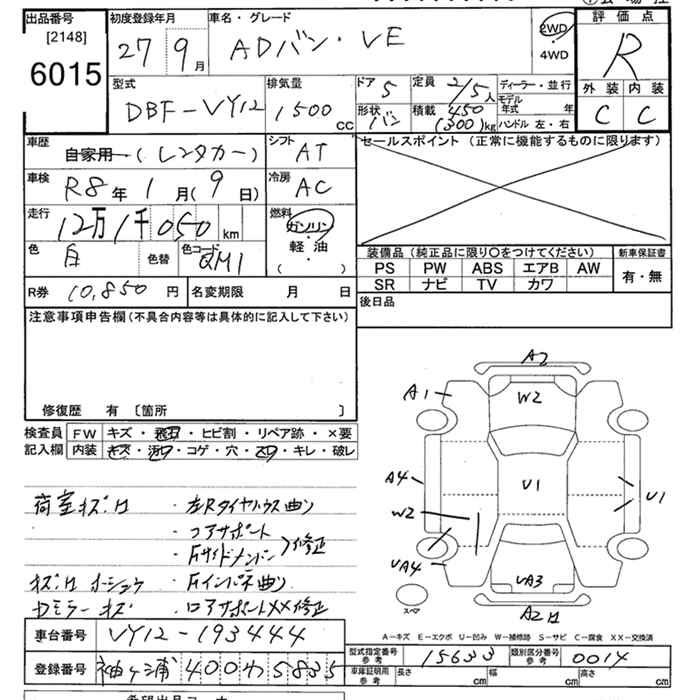 出品番号
[2148]
6015
初度登録年月
27 9月
車名・グレード
ADバン・VE
2WD
・
4WD
評価点
R
外装 内装
C C
型式
DBF-VY12
排気量
1500 CC
ドア 5
形状 バン
定員 2/5人
積載 450 (300)kg
ディーラー・並行
モデル年式 年
ハンドル 左・右
車歴
自家用・(レンタカー)
シフト AT
車検 R8年1月(9日)
冷房 AC
走行 12万1千050km
燃料
ガソリン
・
軽油
( )
色 白 色替
色コード QM1
セールスポイント (正常に機能するものに限ります)
装備品 (純正品に限り○をつけてください)
PS PW ABS エアB AW
SR ナビ TV カワ
新車保証書
有・無
後日品
R券 10,850円
名変期限 月 日
注意事項申告欄(不具合内容等は具体的に記入して下さい)
修復歴 有 〔箇所 〕
検査員記入欄
FW キズ・飛石・ヒビ割・リペア跡・×要
内装 キズ・汚れ・コゲ・穴・スレ・キレ・破レ
荷室キズ
・左Rタイヤハウス曲り
・コアサポート
・Fサイドメンバー 修正
・Fインパネ曲り
・ロアサポートXX修正
A2
A1
W2
A4
U1
U1
W2
UA4
UA3
A2
スペア
A-キズ E-エクボ U-凹み W-補修跡 S-サビ C-腐食 XX-交換済
車台番号 VY12-193444
登録番号 袖ヶ浦 400 わ 5835
型式指定番号 参考 15633
類別区分番号 参考 0014
車庫証明用 参考 長さ cm 幅 cm 高さ cm